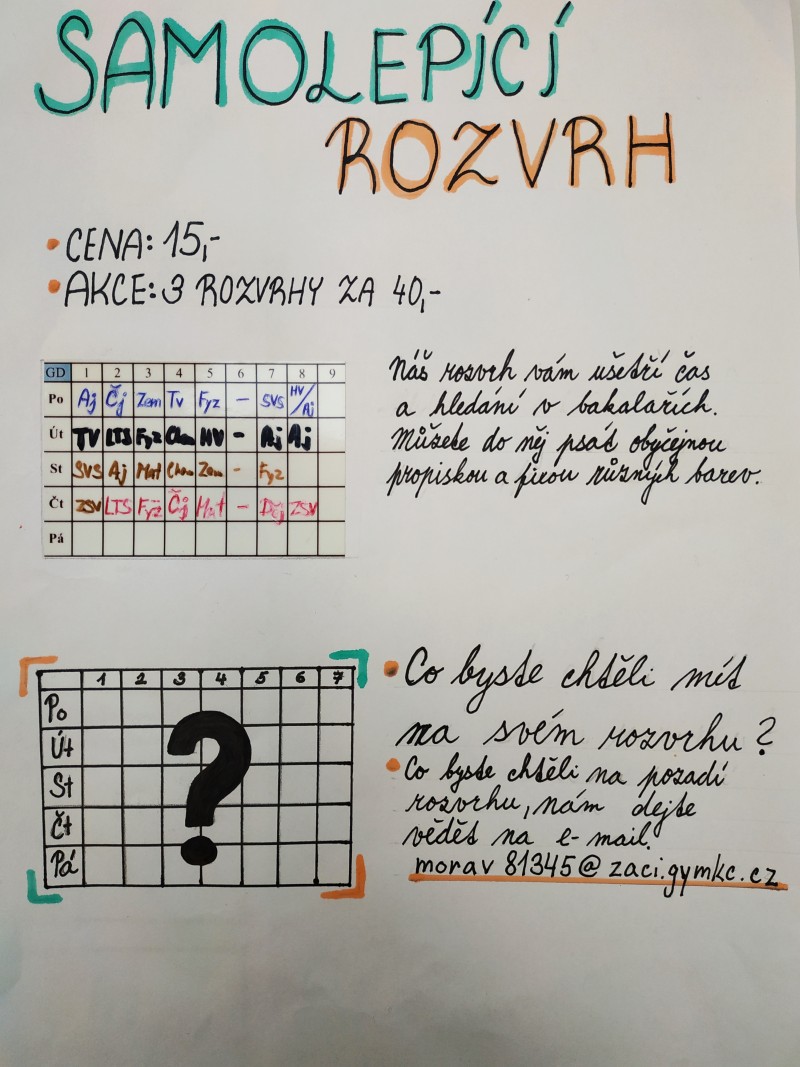 SAMOLEPÍCÍ
ROZVRH
• CENA: 15,-
• AKCE: 3 ROZVRHY ZA 40,-
GD 1 2 3 4 5 6 7 8 9
Po Aj Čj Zem Tv Fyz - SVS HV/Aj
Út TV LTS Fyz Chem HV - Aj Aj
St SVS Aj Mat Chem Zem - Fyz
Čt ZSV LTS Fyz Čj Mat - Děj ZSV
Pá
Náš rozvrh vám ušetří čas
a hledání v bakalařích.
Můžete do něj psát obyčejnou
propiskou a ficou různých barev.
1 2 3 4 5 6 7
Po
Út
St
Čt
Pá
?
• Co byste chtěli mít
na svém rozvrhu?
• Co byste chtěli na pozadí
rozvrhu, nám dejte
vědět na e-mail.
morav81345@zaci.gymkc.cz